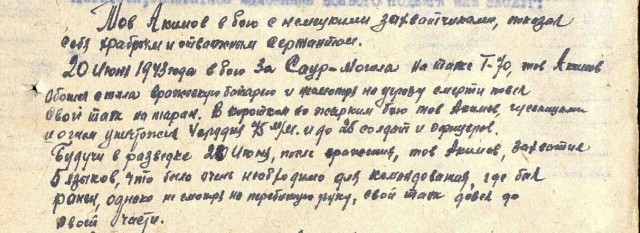 Тов Акимов в бою с немецкими захватчиками, показал
себя храбрым и отважным сержантом.
20 июня 1943 года в бою за Саур-Могила на танке Т-70, тов Акимов
вражескую батарею и не смотря на угрозу смерти повел
свой танк на таран. В коротком но жарким бою тов Акимов, гусеницами
и огнем уничтожил 4 орудия 75 м/м. и до 25 солдат и офицеров.
Будучи в разведке 2 Июня, после сражения, тов Акимов, захватил
5 языков, что было очень необходимо для командования, где был
ранен, однако не смотря на перебитую руку, свой танк довел до
своей части.